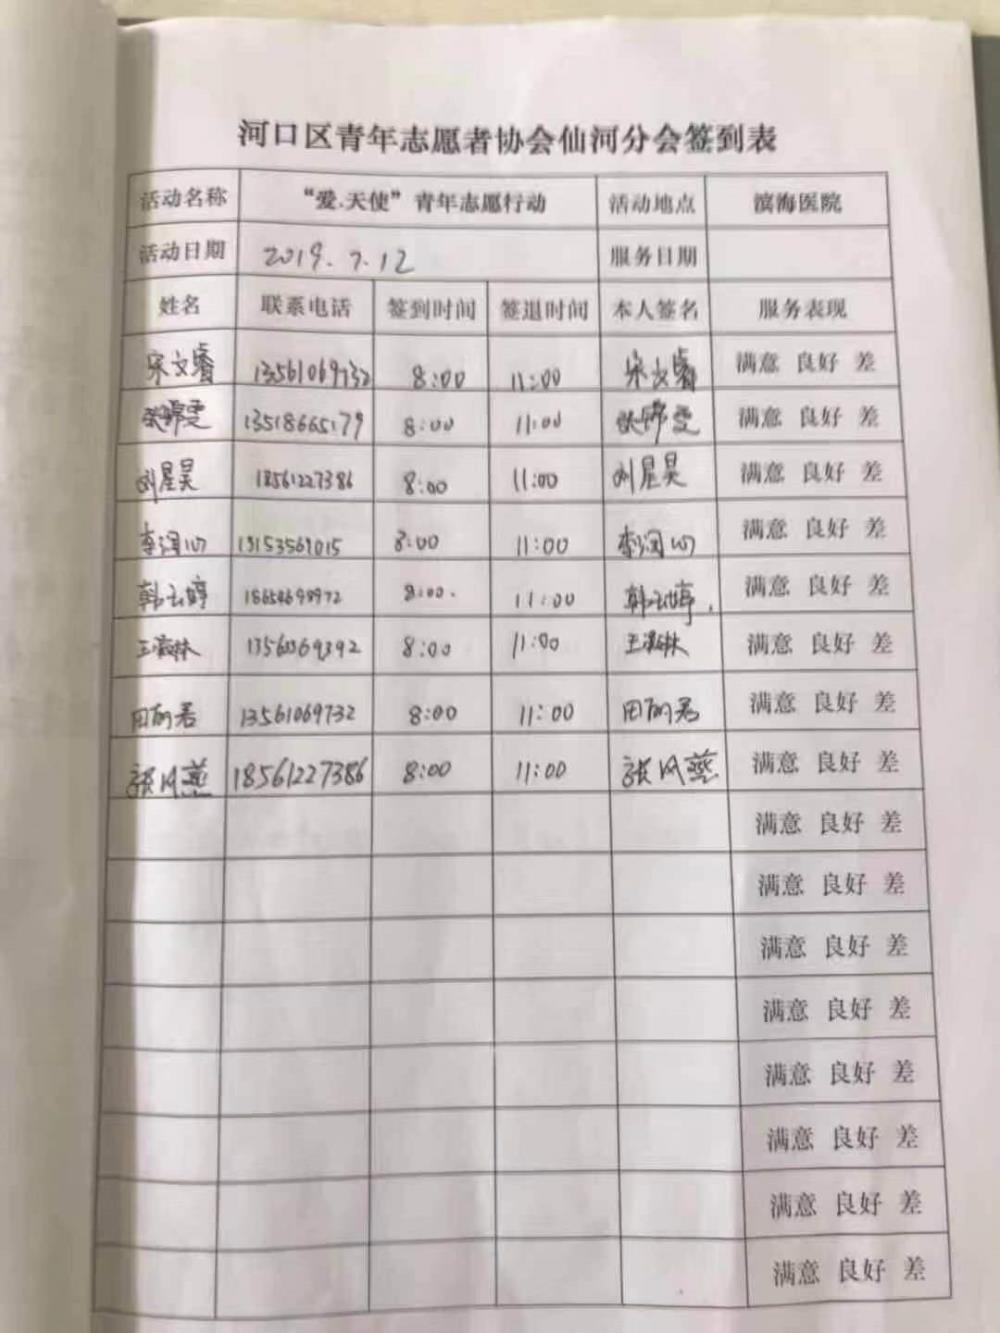 河口区青年志愿者协会仙河分会签到表
活动名称 “爱.天使”青年志愿行动 活动地点 滨海医院
活动日期 2019.7.12 服务日期
姓名 联系电话 签到时间 签退时间 本人签名 服务表现
宋文睿 13561069732 8:00 11:00 宋文睿 满意 良好 差
张锦雯 13518665179 8:00 11:00 张锦雯 满意 良好 差
刘星昊 18561227386 8:00 11:00 刘星昊 满意 良好 差
李润心 8:00 11:00 李润心 满意 良好 差
韩云婷 8:00. 11:00 韩云婷. 满意 良好 差
8:00 11:00 满意 良好 差
田丽君 13561069732 8:00 11:00 田丽君 满意 良好 差
张风燕 18561227386 8:00 11:00 张风燕 满意 良好 差
满意 良好 差
满意 良好 差
满意 良好 差
满意 良好 差
满意 良好 差
满意 良好 差
满意 良好 差
满意 良好 差